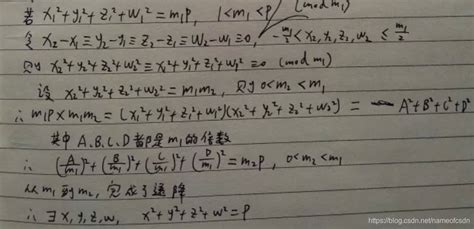 若 x₁²+y₁²+z₁²+w₁² = m₁p, 1<m₁<p (mod m₁)
令 x₂-x₁≡y₂-y₁≡z₂-z₁≡w₂-w₁≡0, -m₁/2<x₂,y₂,z₂,w₂≤m₁/2
则 x₂²+y₂²+z₂²+w₂²≡x₁²+y₁²+z₁²+w₁²≡0 (mod m₁)
设 x₂²+y₂²+z₂²+w₂²=m₁m₂, 则 0<m₂<m₁
∴ m₁p×m₁m₂=(x₁²+y₁²+z₁²+w₁²)(x₂²+y₂²+z₂²+w₂²)= A²+B²+C²+D²
其中 A.B.C.D 都是 m₁的倍数
∴ (A/m₁)²+(B/m₁)²+(C/m₁)²+(D/m₁)²=m₂p, 0<m₂<m₁
从 m₁ 到 m₂, 完成了递降
∴ ∃x,y,z,w, x²+y²+z²+w²=p
https://blog.csdn.net/nameofcsdn